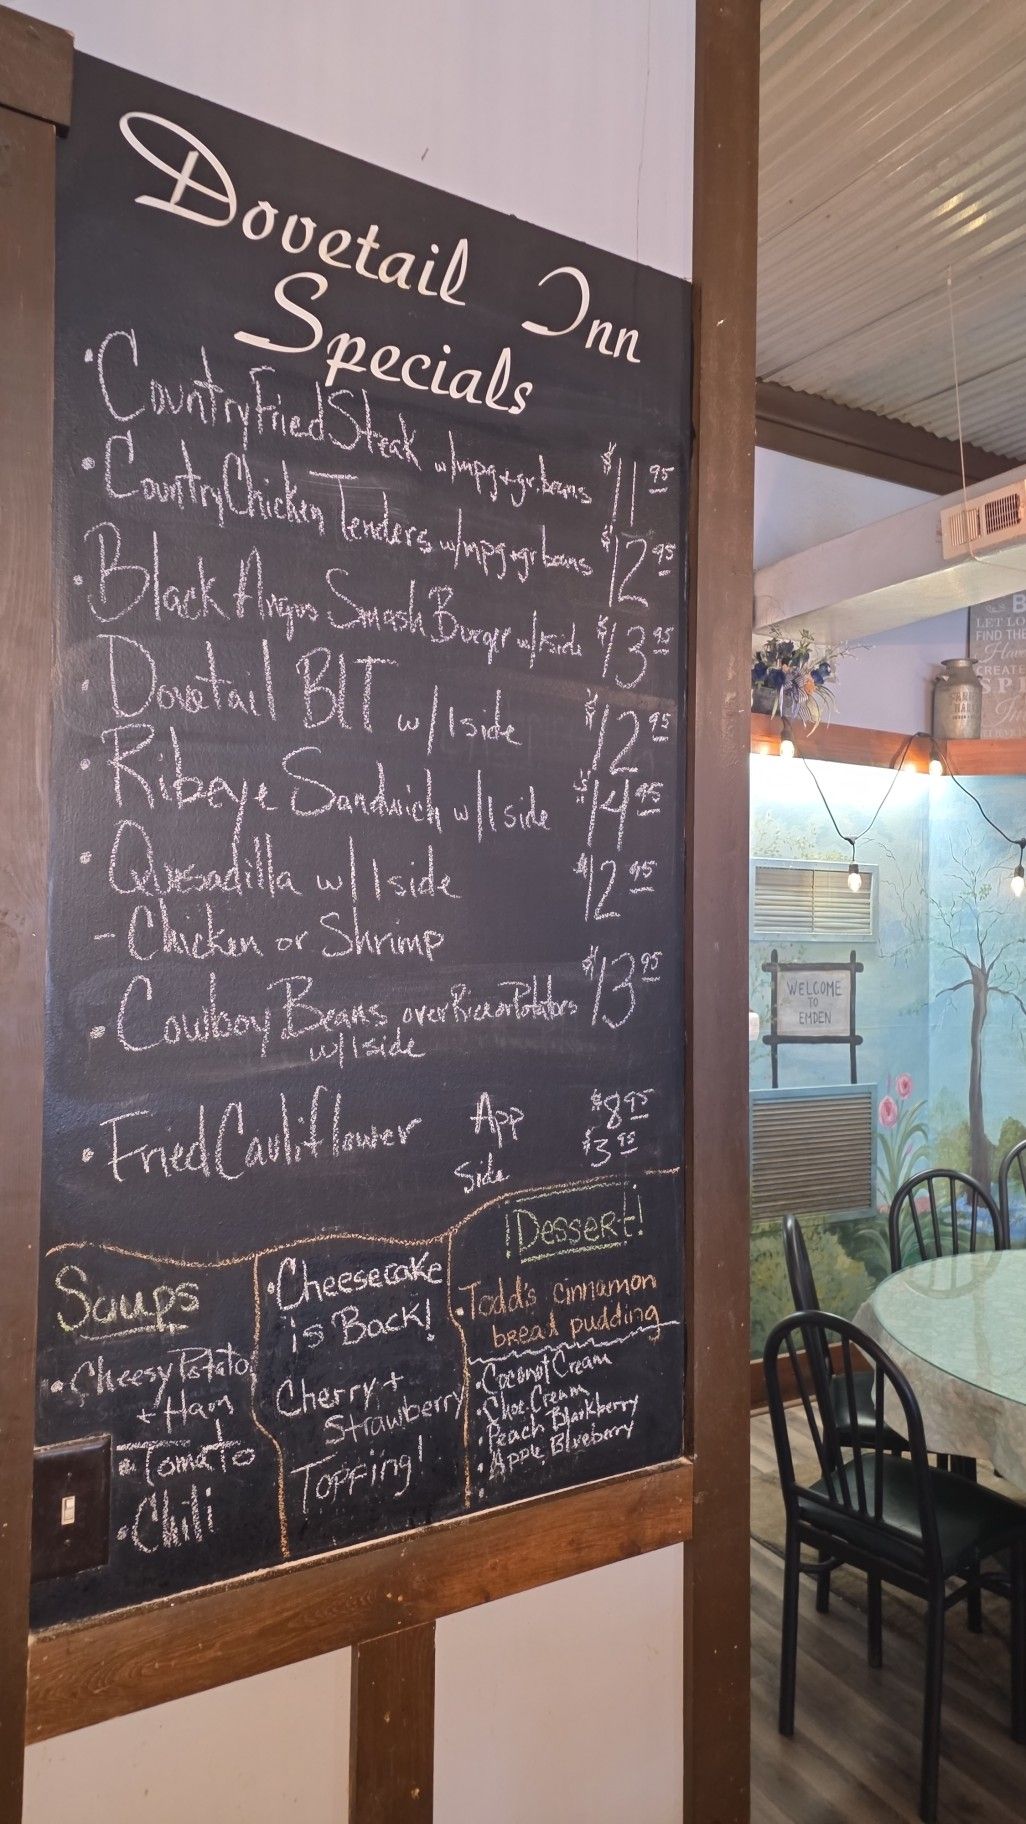 Dovetail Inn
Specials
• Country Fried Steak w/mpg+gr.beans $11.95
• Country Chicken Tenders w/mpg+gr beans $12.95
• Black Angus Smash Burger w/1side $13.95
• Dovetail BLT w/1side $12.95
• Ribeye Sandwich w/1side $14.95
• Quesadilla w/1side $12.95
- Chicken or Shrimp
• Cowboy Beans over Rice or Potatoes $13.95
w/1side
• Fried Cauliflower App $8.95
Side $3.95
Soups
• Cheesy Potato
+ Ham
• Tomato
• Chili
• Cheesecake
is Back!
Cherry +
Strawberry
Topping!
!Dessert!
• Todd's cinnamon
bread pudding
• Coconut Cream
• Choc Cream
Peach Blackberry
• Apple Blueberry
WELCOME
TO
EMDEN
LET LO
FIND THE
Have
CREATE
SPI